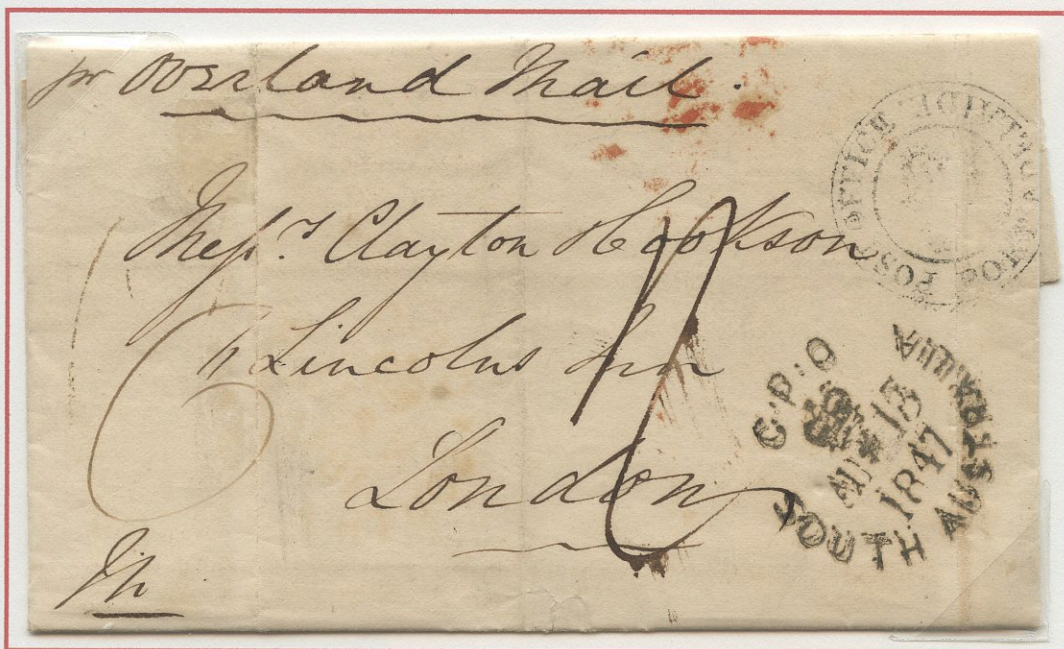 pr Overland Mail.
Messrs. Clayton & Cookson
6 Lincolns Inn
London
POST OFFICE
G.P.O
SOUTH AUSTRALIA
13
1847